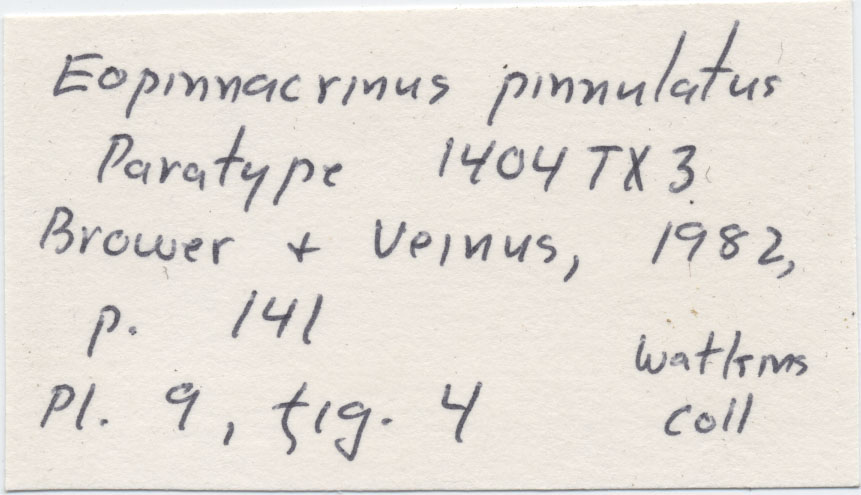 Eopinnacrinus pinnulatus
Paratype 1404 TX 3
Brower + Veinus, 1982,
p. 141
Pl. 9, fig. 4
Watkins
coll